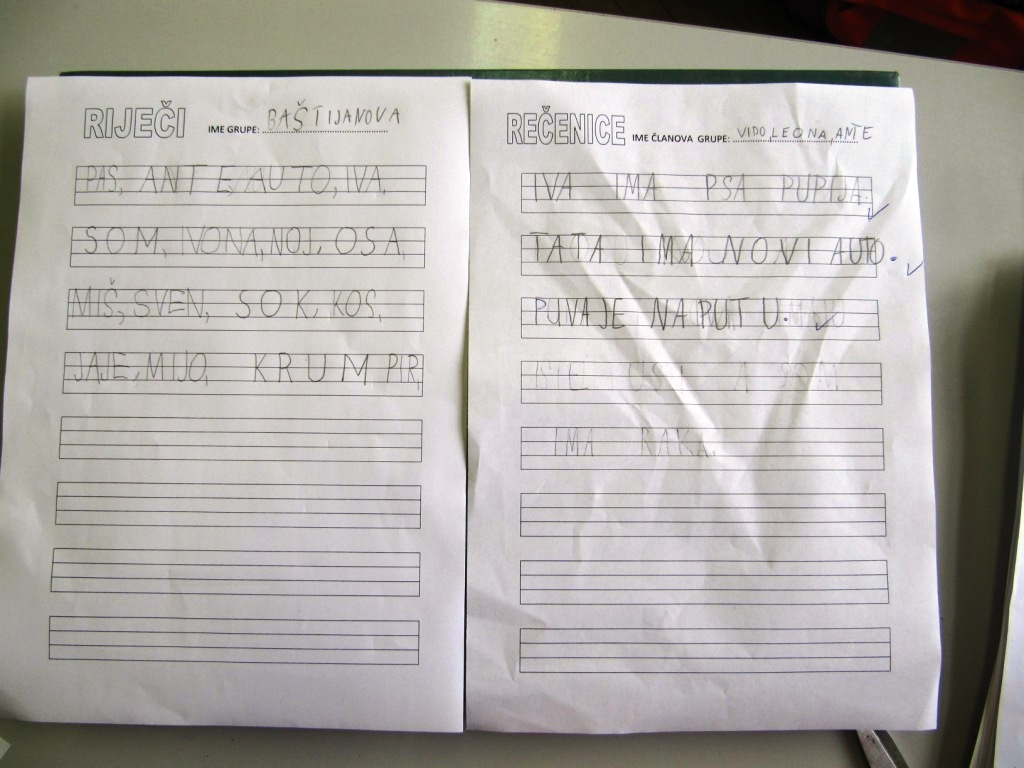 RIJEČI
IME GRUPE: BAŠTIJANOVA
PAS, ANTE, AUTO, IVA,
SOM, IVONA, NOJ, OSA,
MIŠ, SVEN, SOK, KOS,
JAJE, MIJO, KRUMPIR,
REČENICE
IME ČLANOVA GRUPE: VIDO, LEONA, ANTE
IVA IMA PSA PUPIJA.
TATA IMA NOVI AUTO.
PUVAJE NA PUTU.
IMA RAKA.